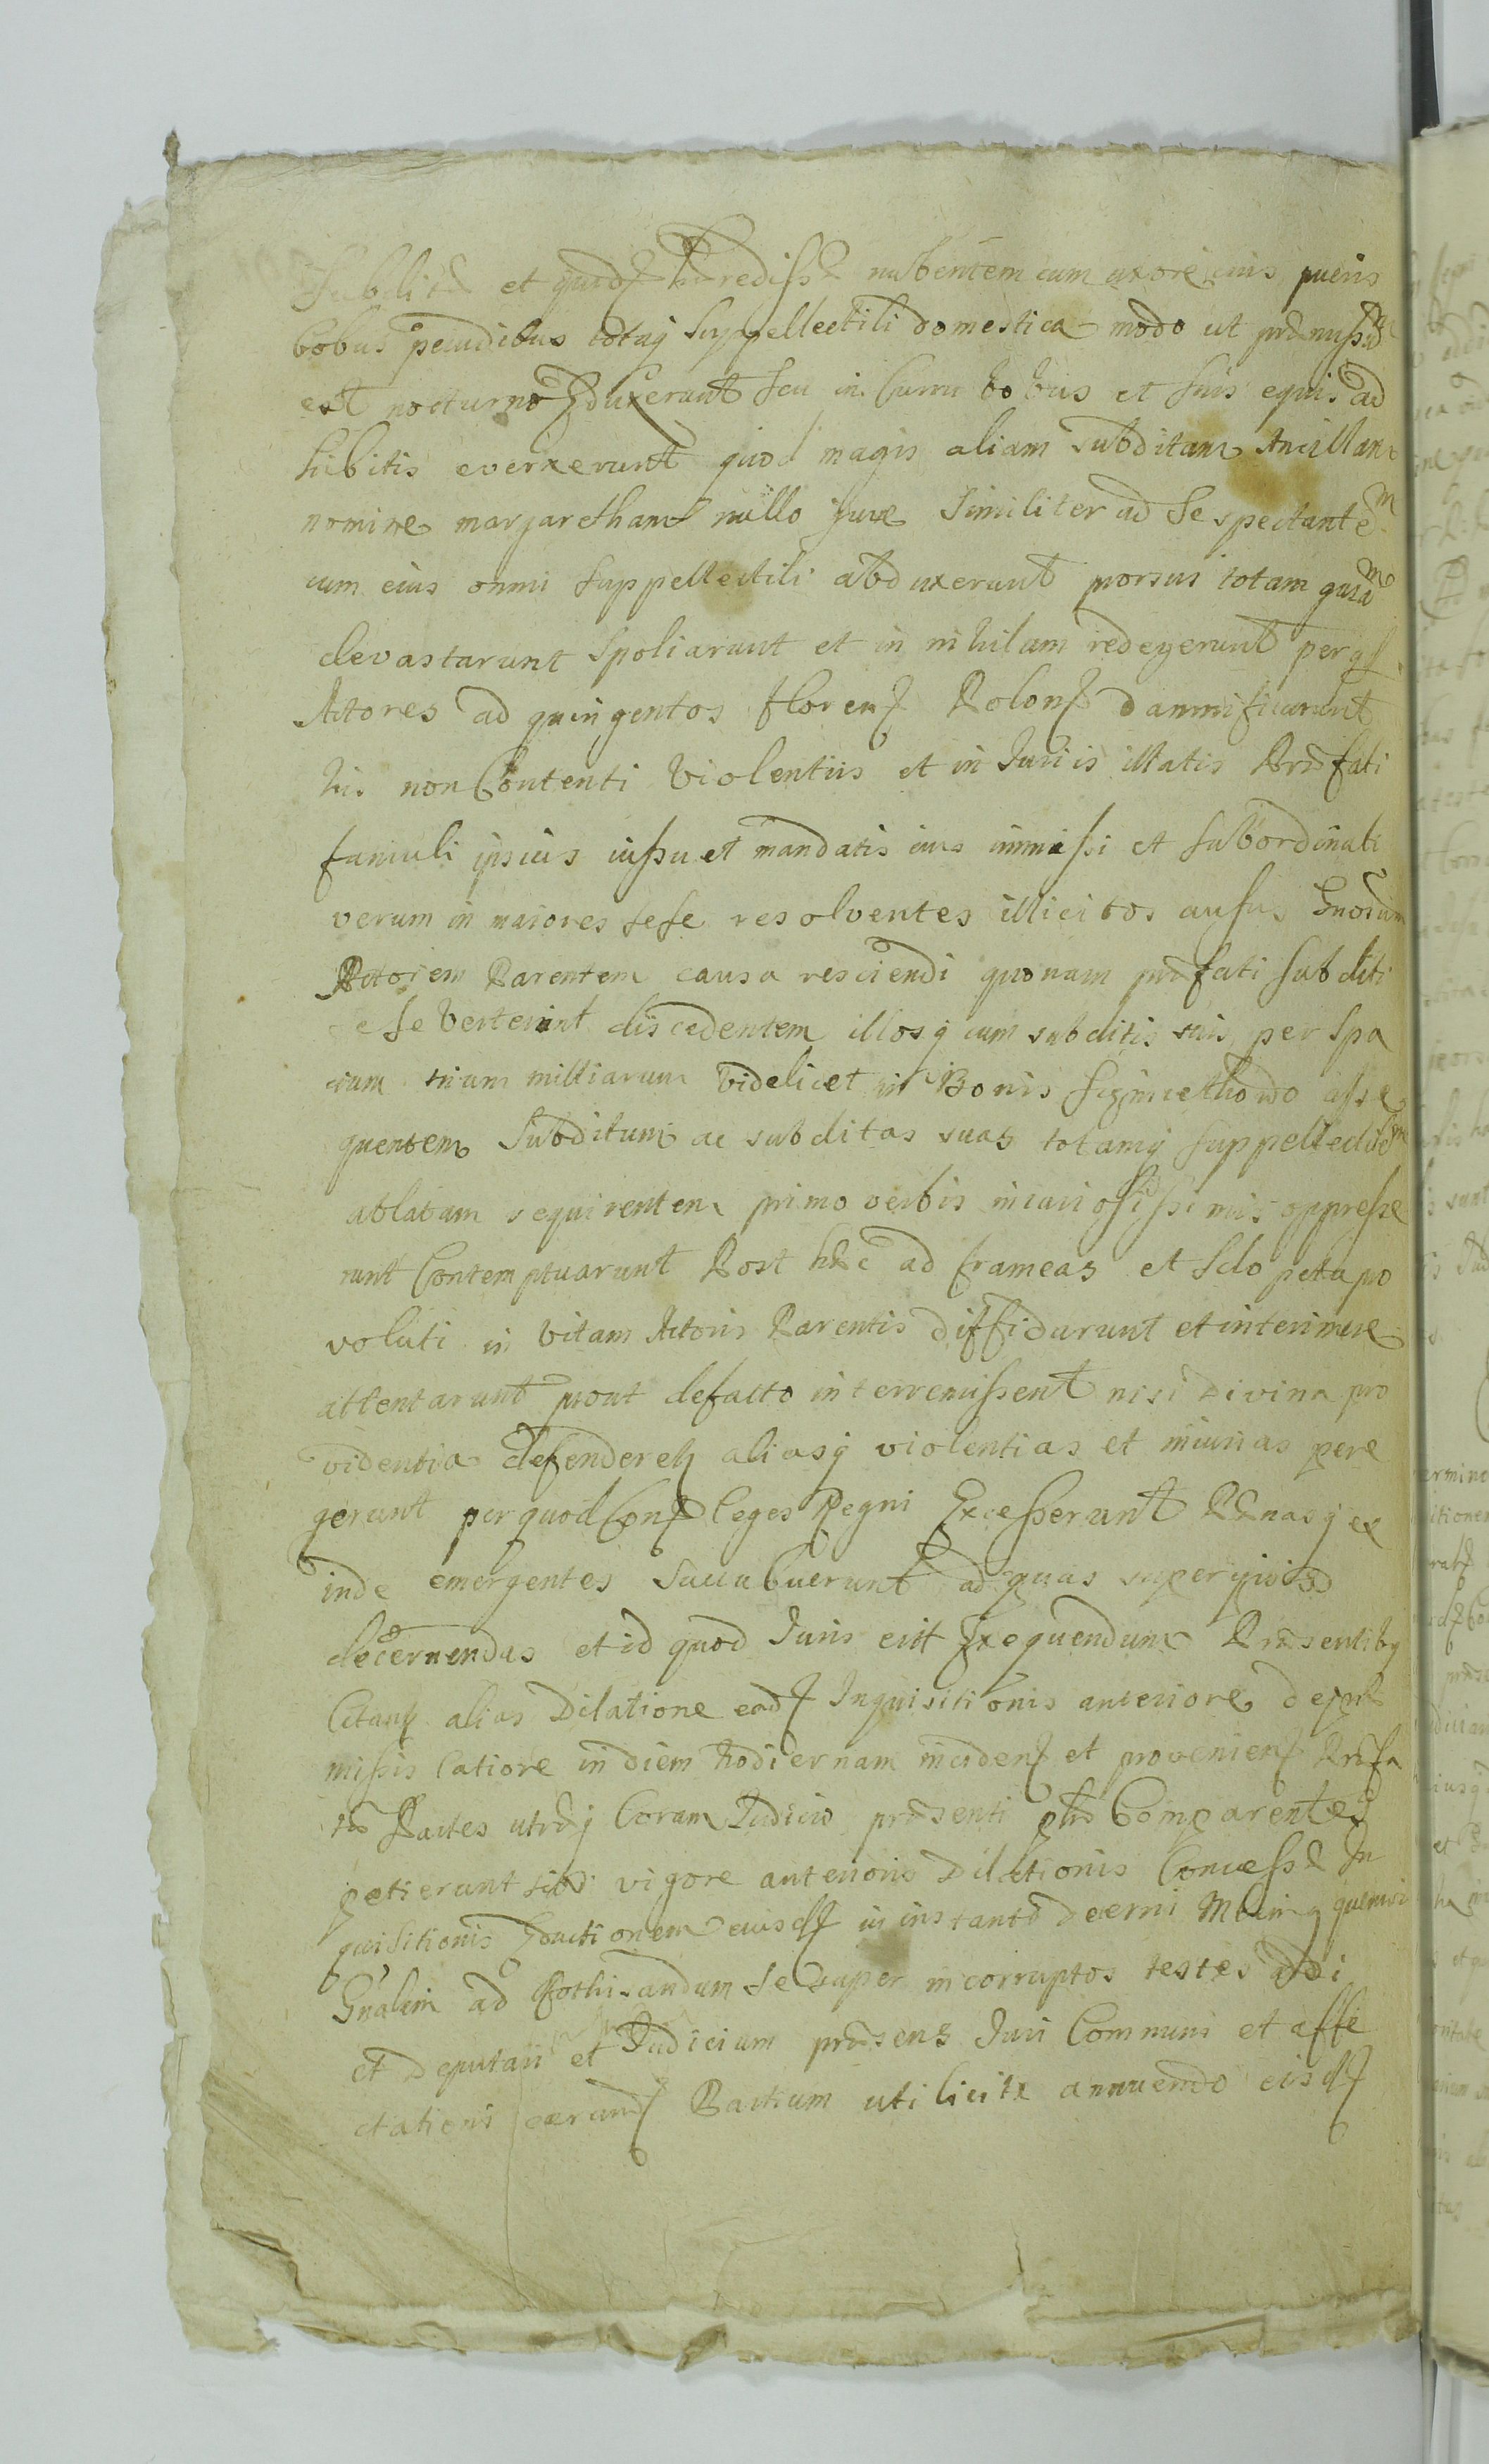 Subditæ et quidem hæredissæ nubentem cum uxore eius pueris
bobus pecudibus totaq suppellectili domestica modo ut præmissũ
est nocturno Eduxerunt seu in Curru bobus et suis equis ad
hibitis everxerunt quod magis aliam subditam Ancillam
nomine margaretham nullo jure similiter ad se spectantem
cum eius omni suppellectili abduxerunt prorsus totam
devastarunt spoliarunt et in nihilum redegerunt per
Actores ad quingentos floren Polon damnificarunt
his non Contenti Violentiis et in Iuriis illatis Præfati
famuli ipsius iussu et mandatis eius immissi et subordinati
verum in maiores sese resolventes illicitos ausus Gnosum
Actorem Parentem causa resciendi quonam præfati subditi
se se verterint discedentem illosq cum subditis suis per spa
cium trium milliarum Videlicet in Bonis asse
quentem Subditum ac subditas suas totamq suppellectilem
ablatam requirentem primo verbis iniuriosissimis oppresse
runt Contemptuarunt Post hæc ad frameas et sclopeta pro
voluti in Vitam Actoris Parentis diffidarunt et interimere
attentarunt prout defacto interremissent nisi Divina pro
videntia defenderet aliasq violentias et iniurias pere
gerunt per quod Leges Regni Excesserunt Pænasq ex
inde emergentes succubuerunt ad quas super
decernendas et id quod Iuris erit Exequendum Præsentibq
Citant alias Dilatione ead Inquisitionis anteriore de
missis latiore in diem hodiernam inciden et provenien Præfa
tæ Partes utræq Coram Iudicio præsenti Comparentes
petierunt sibi vigore anterioris Dilationis Concessæ In
quisitionis Eductionem eiusd in instanti decerni
Gnalem ad Rothisandum se super incorruptos testes addi
et Deputari et Iudicium præsens Iuri Communi et affe
ctationi earund Partium utiliter annuendo eisd